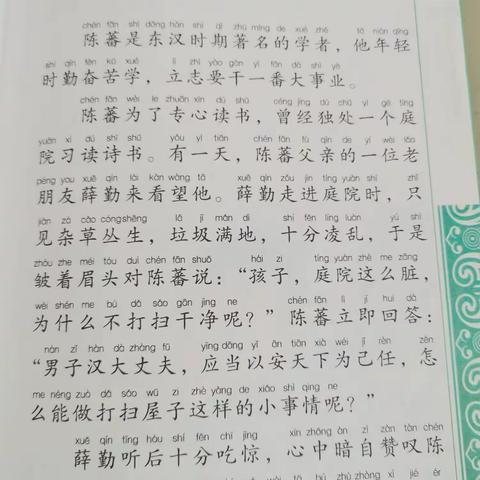 chén fān shì dōng hàn shí qī zhù míng de xué zhě tā nián qīng
陈蕃是东汉时期著名的学者，他年轻
shí qín fèn kǔ xué lì zhì yào gàn yì fān dà shì yè
时勤奋苦学，立志要干一番大事业。
chén fān wèi le zhuān xīn dú shū céng jīng dú chǔ yí gè tíng
陈蕃为了专心读书，曾经独处一个庭
yuàn xí dú shī shū yǒu yì tiān chén fān fù qīn de yí wèi lǎo
院习读诗书。有一天，陈蕃父亲的一位老
péng you xuē qín lái kàn wàng tā xuē qín zǒu jìn tíng yuàn shí zhǐ
朋友薛勤来看望他。薛勤走进庭院时，只
jiàn zá cǎo cóng shēng lā jī mǎn dì shí fēn líng luàn yú shì
见杂草丛生，垃圾满地，十分凌乱，于是
zhòu zhe méi tóu duì chén fān shuō hái zi tíng yuàn zhè me zāng
皱着眉头对陈蕃说：“孩子，庭院这么脏，
wèi shén me bù dǎ sǎo gān jìng ne chén fān lì jí huí dá
为什么不打扫干净呢？”陈蕃立即回答：
nán zǐ hàn dà zhàng fū yīng dāng yǐ ān tiān xià wéi jǐ rèn zěn
“男子汉大丈夫，应当以安天下为己任，怎
me néng zuò dǎ sǎo wū zi zhè yàng de xiǎo shì qing ne
么能做打扫屋子这样的小事情呢？”
xuē qín tīng hòu shí fēn chī jīng xīn zhōng àn zì zàn tàn chén
薛勤听后十分吃惊，心中暗自赞叹陈